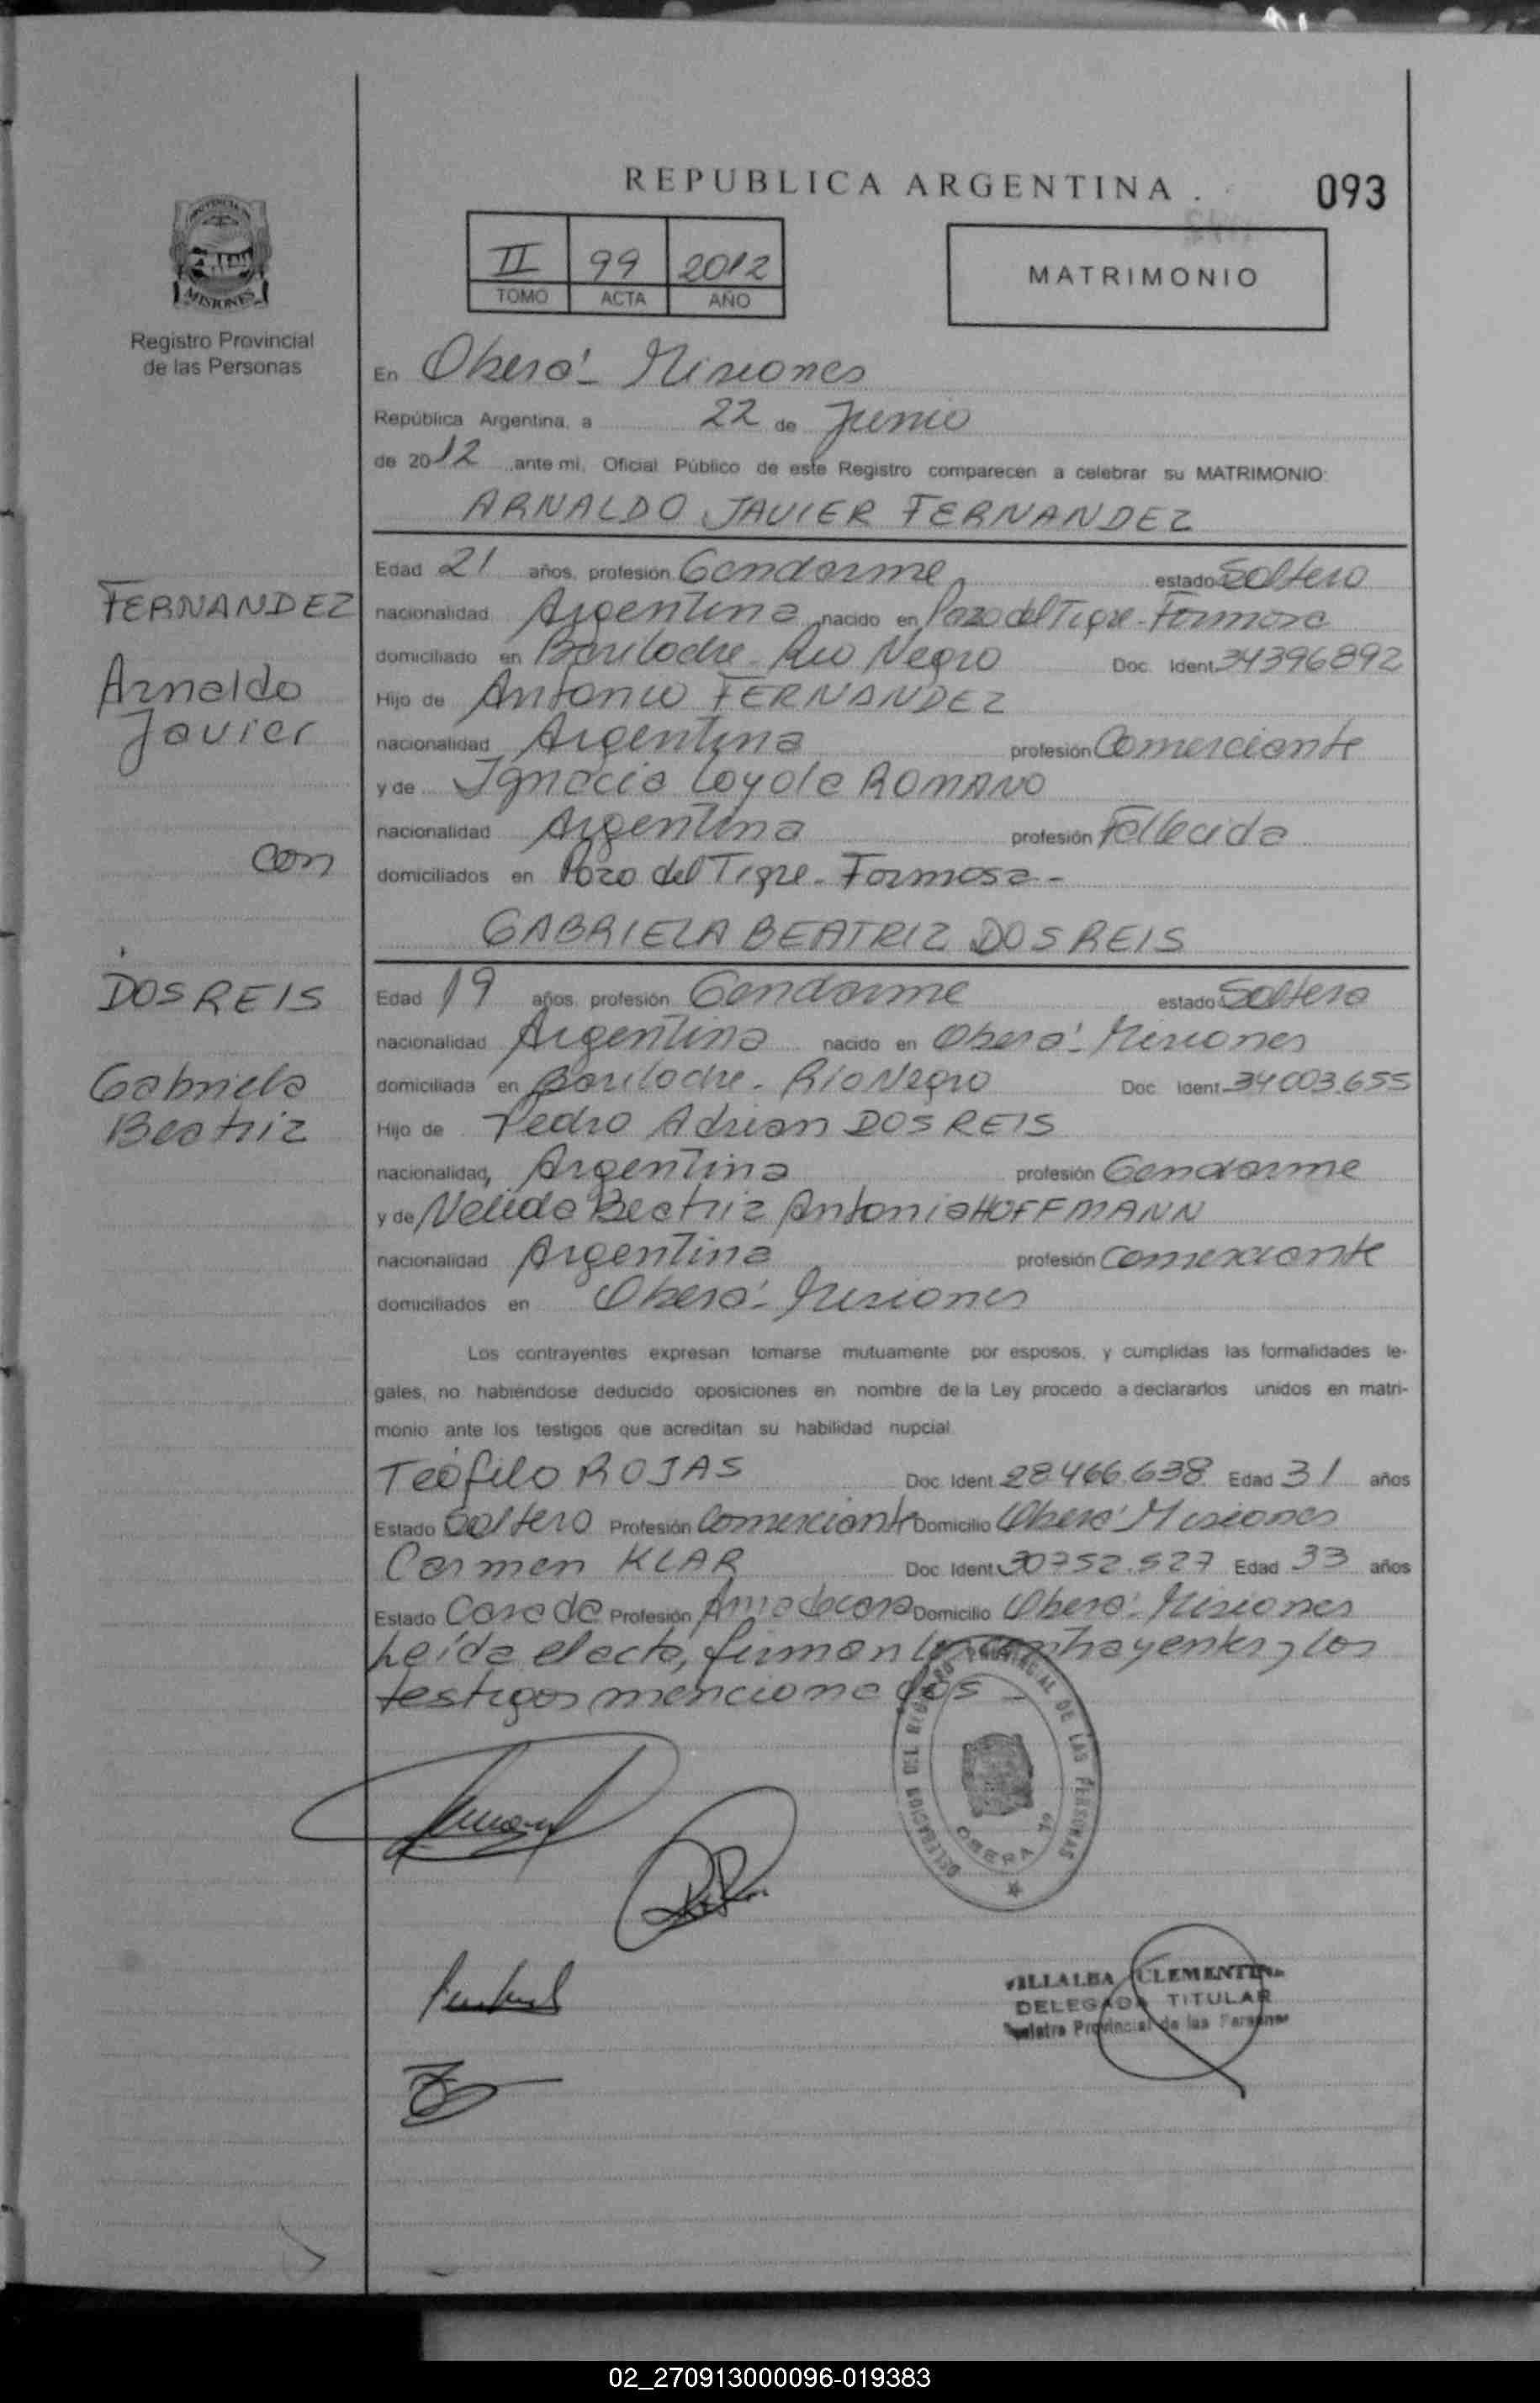 REPUBLICA ARGENTINA
093
II 99 2012
TOMO ACTA AÑO
MATRIMONIO
MISIONES
Registro Provincial
de las Personas
En Oberá - Misiones
República Argentina, a 22 de Junio
de 2012 ante mi, Oficial Público de este Registro comparecen a celebrar su MATRIMONIO:
ARNALDO JAVIER FERNANDEZ
Edad 21 años, profesión Gendarme estado Soltero
FERNANDEZ
nacionalidad Argentina nacido en Pozo del Tigre - Formosa
domiciliado en Bariloche - Rio Negro Doc. Ident. 34396892
Arnaldo
Javier
Hijo de Antonio FERNANDEZ
nacionalidad Argentina profesión Comerciante
y de Ignacia Loyola ROMANO
nacionalidad Argentina profesión Fallecida
con
domiciliados en Pozo del Tigre - Formosa -
GABRIELA BEATRIZ DOS REIS
DOS REIS
Edad 19 años, profesión Gendarme estado Soltera
nacionalidad Argentina nacido en Oberá - Misiones
Gabriela
Beatriz
domiciliada en Bariloche - Rio Negro Doc. Ident. 34003.655
Hijo de Pedro Adrian DOS REIS
nacionalidad, Argentina profesión Gendarme
y de Nelida Beatriz Antonia HOFFMANN
nacionalidad Argentina profesión comerciante
domiciliados en Oberá - Misiones
Los contrayentes expresan tomarse mutuamente por esposos, y cumplidas las formalidades le-
gales, no habiéndose deducido oposiciones en nombre de la Ley procedo a declararlos unidos en matri-
monio ante los testigos que acreditan su habilidad nupcial
Teófilo ROJAS Doc. Ident. 28.466.638 Edad 31 años
Estado Soltero Profesión Comerciante Domicilio Oberá Misiones
Carmen KLAR Doc. Ident. 30752.527 Edad 33 años
Estado Casada Profesión Ama de casa Domicilio Oberá - Misiones
Leída el acta, firman los contrayentes y los
testigos mencionados -
DELEGACION DEL REGISTRO PROVINCIAL DE LAS PERSONAS
OBERA
VILLALBA CLEMENTINA
DELEGADA TITULAR
Registro Provincial de las Personas
02_270913000096-019383